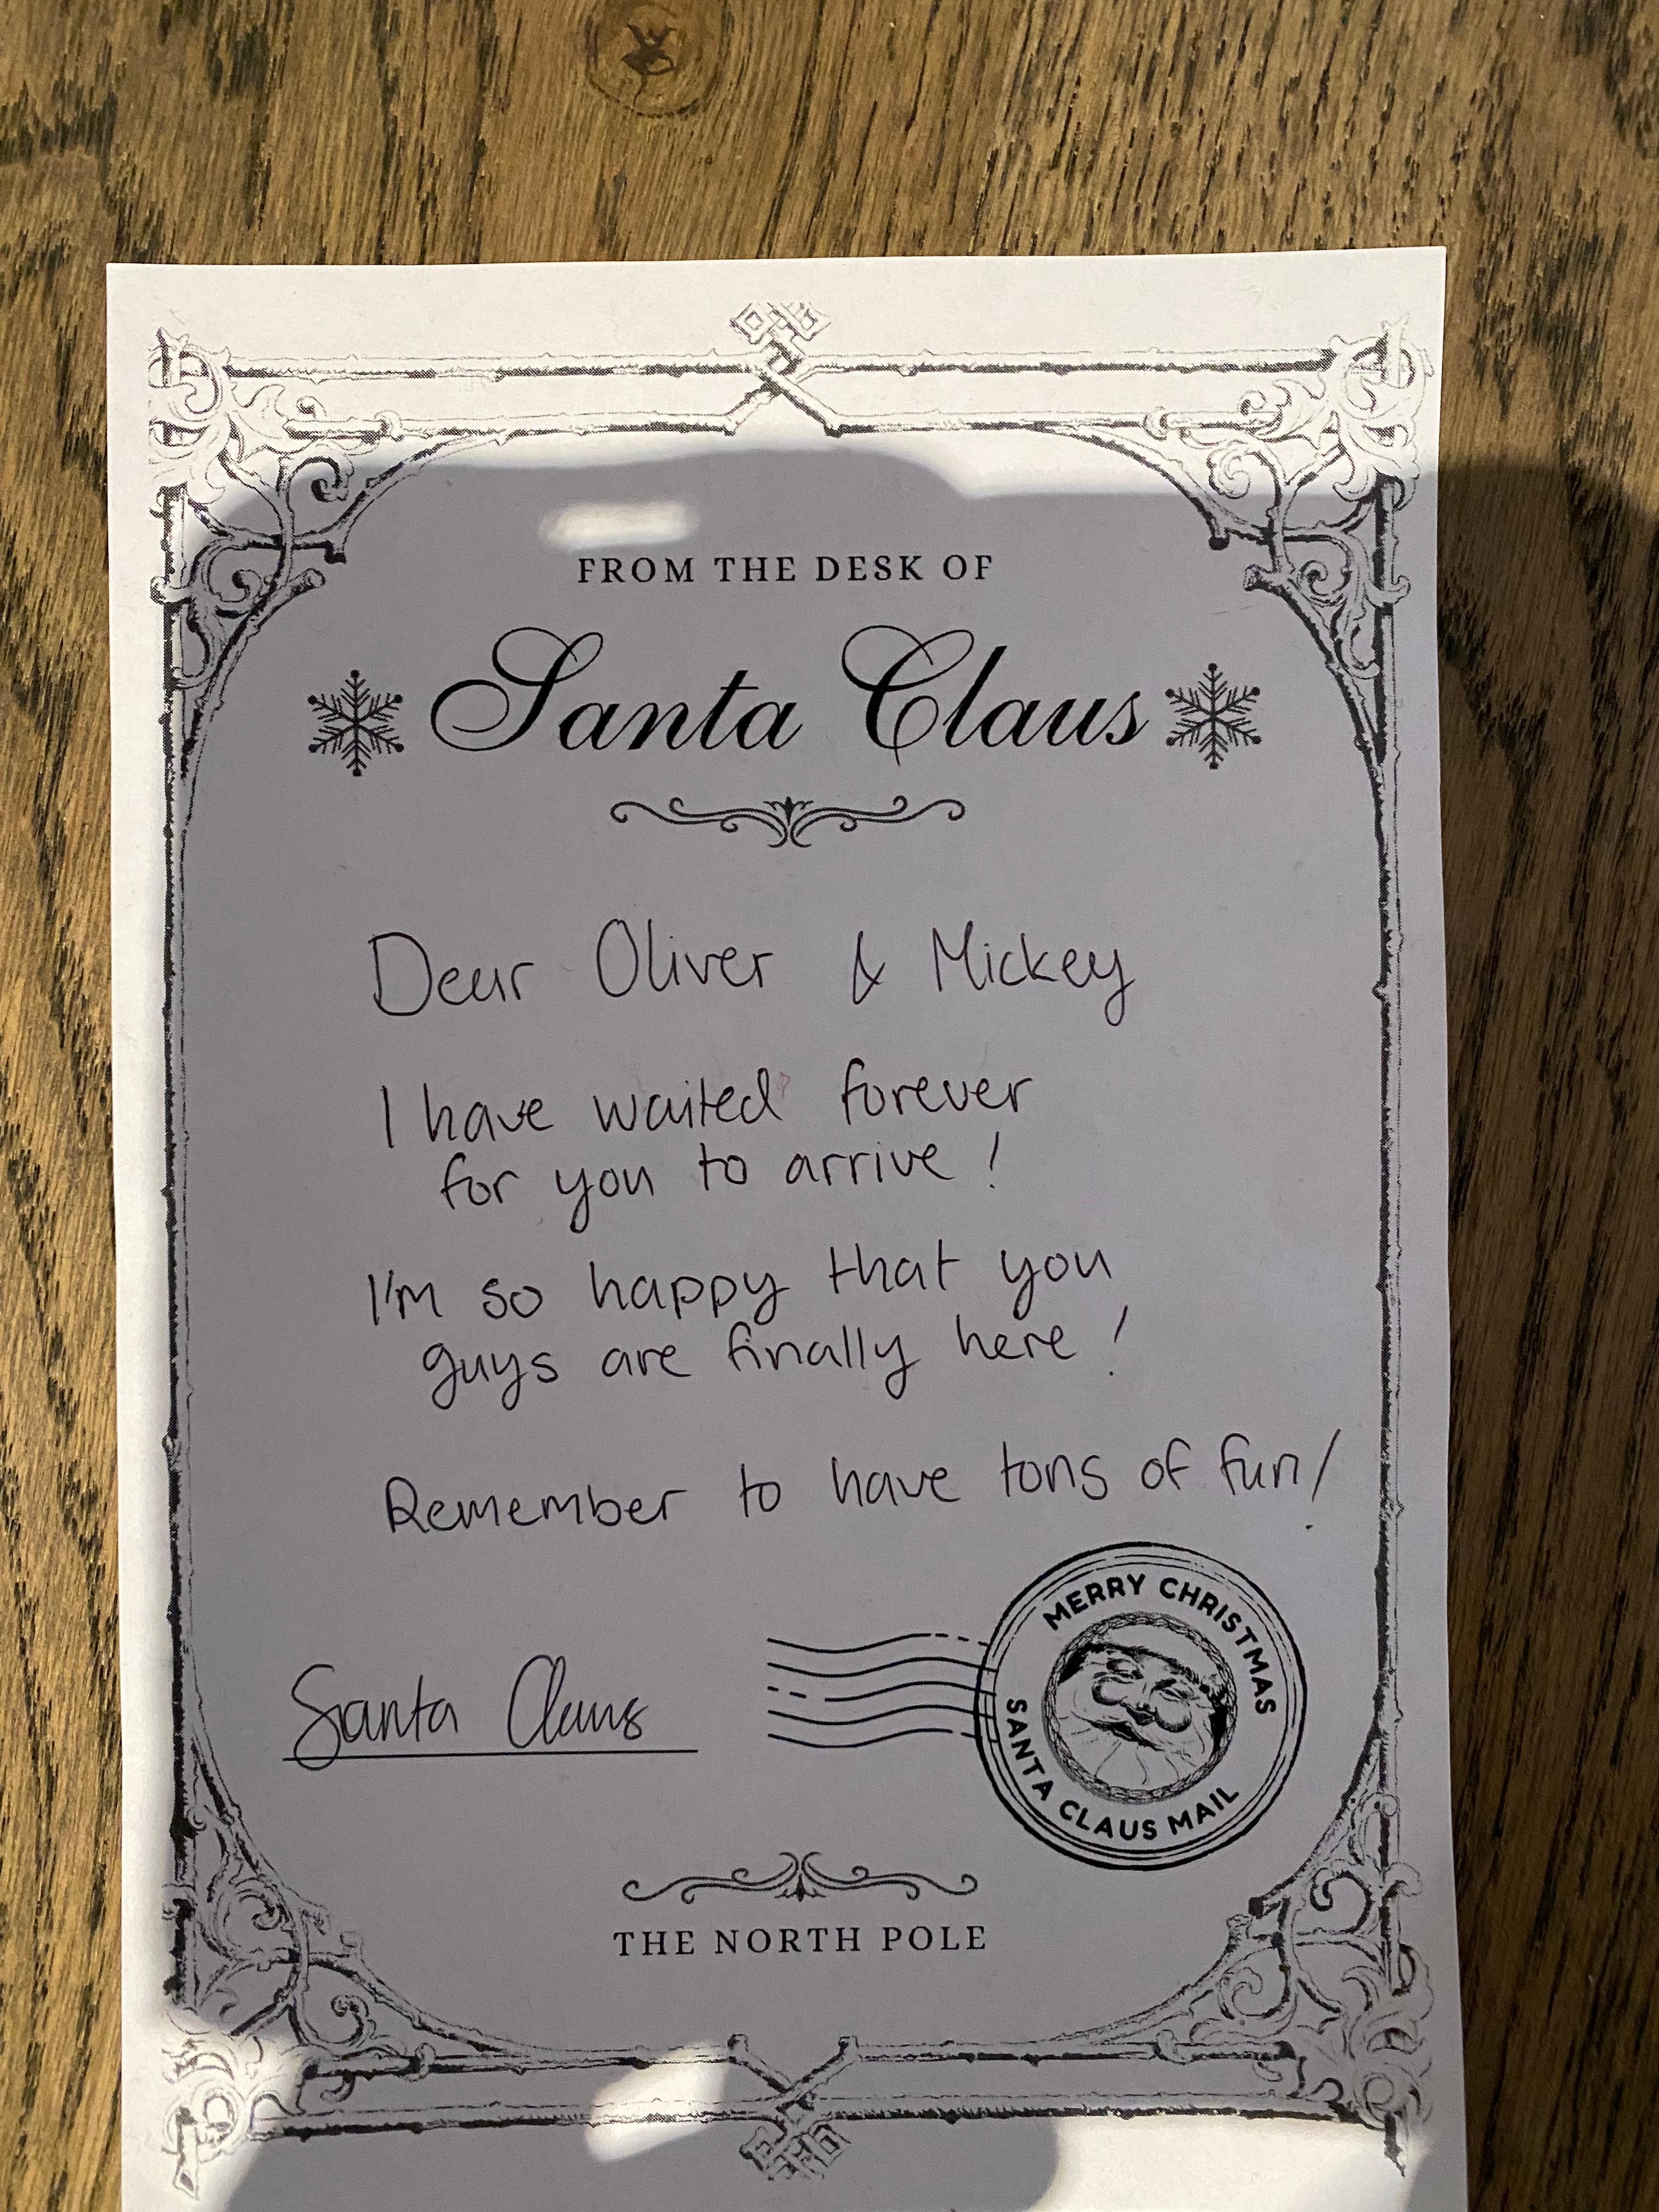 FROM THE DESK OF
Santa Claus
Dear Oliver & Mickey
I have waited forever
for you to arrive!
I'm so happy that you
guys are finally here!
Remember to have tons of fun!
MERRY CHRISTMAS
SANTA CLAUS MAIL
Santa Claus
THE NORTH POLE